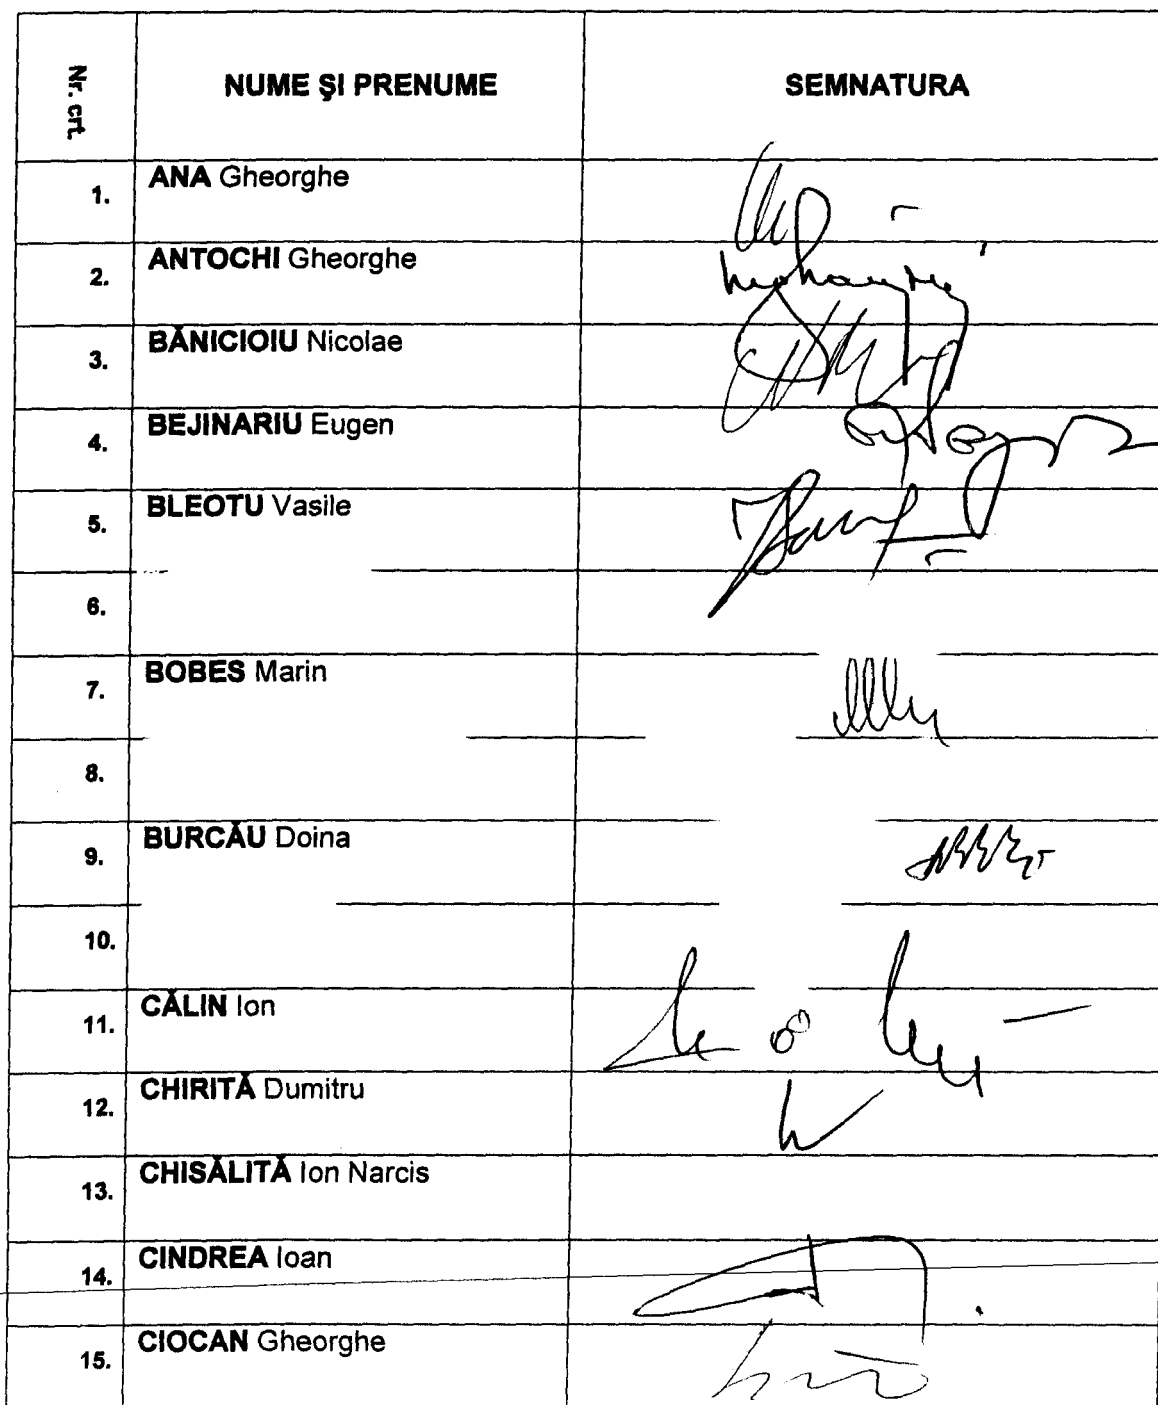 Nr. crt.
NUME ŞI PRENUME
SEMNATURA
1. ANA Gheorghe
2. ANTOCHI Gheorghe
3. BĂNICIOIU Nicolae
4. BEJINARIU Eugen
5. BLEOTU Vasile
6.
7. BOBES Marin
8.
9. BURCĂU Doina
10.
11. CĂLIN Ion
12. CHIRITĂ Dumitru
13. CHISĂLITĂ Ion Narcis
14. CINDREA Ioan
15. CIOCAN Gheorghe